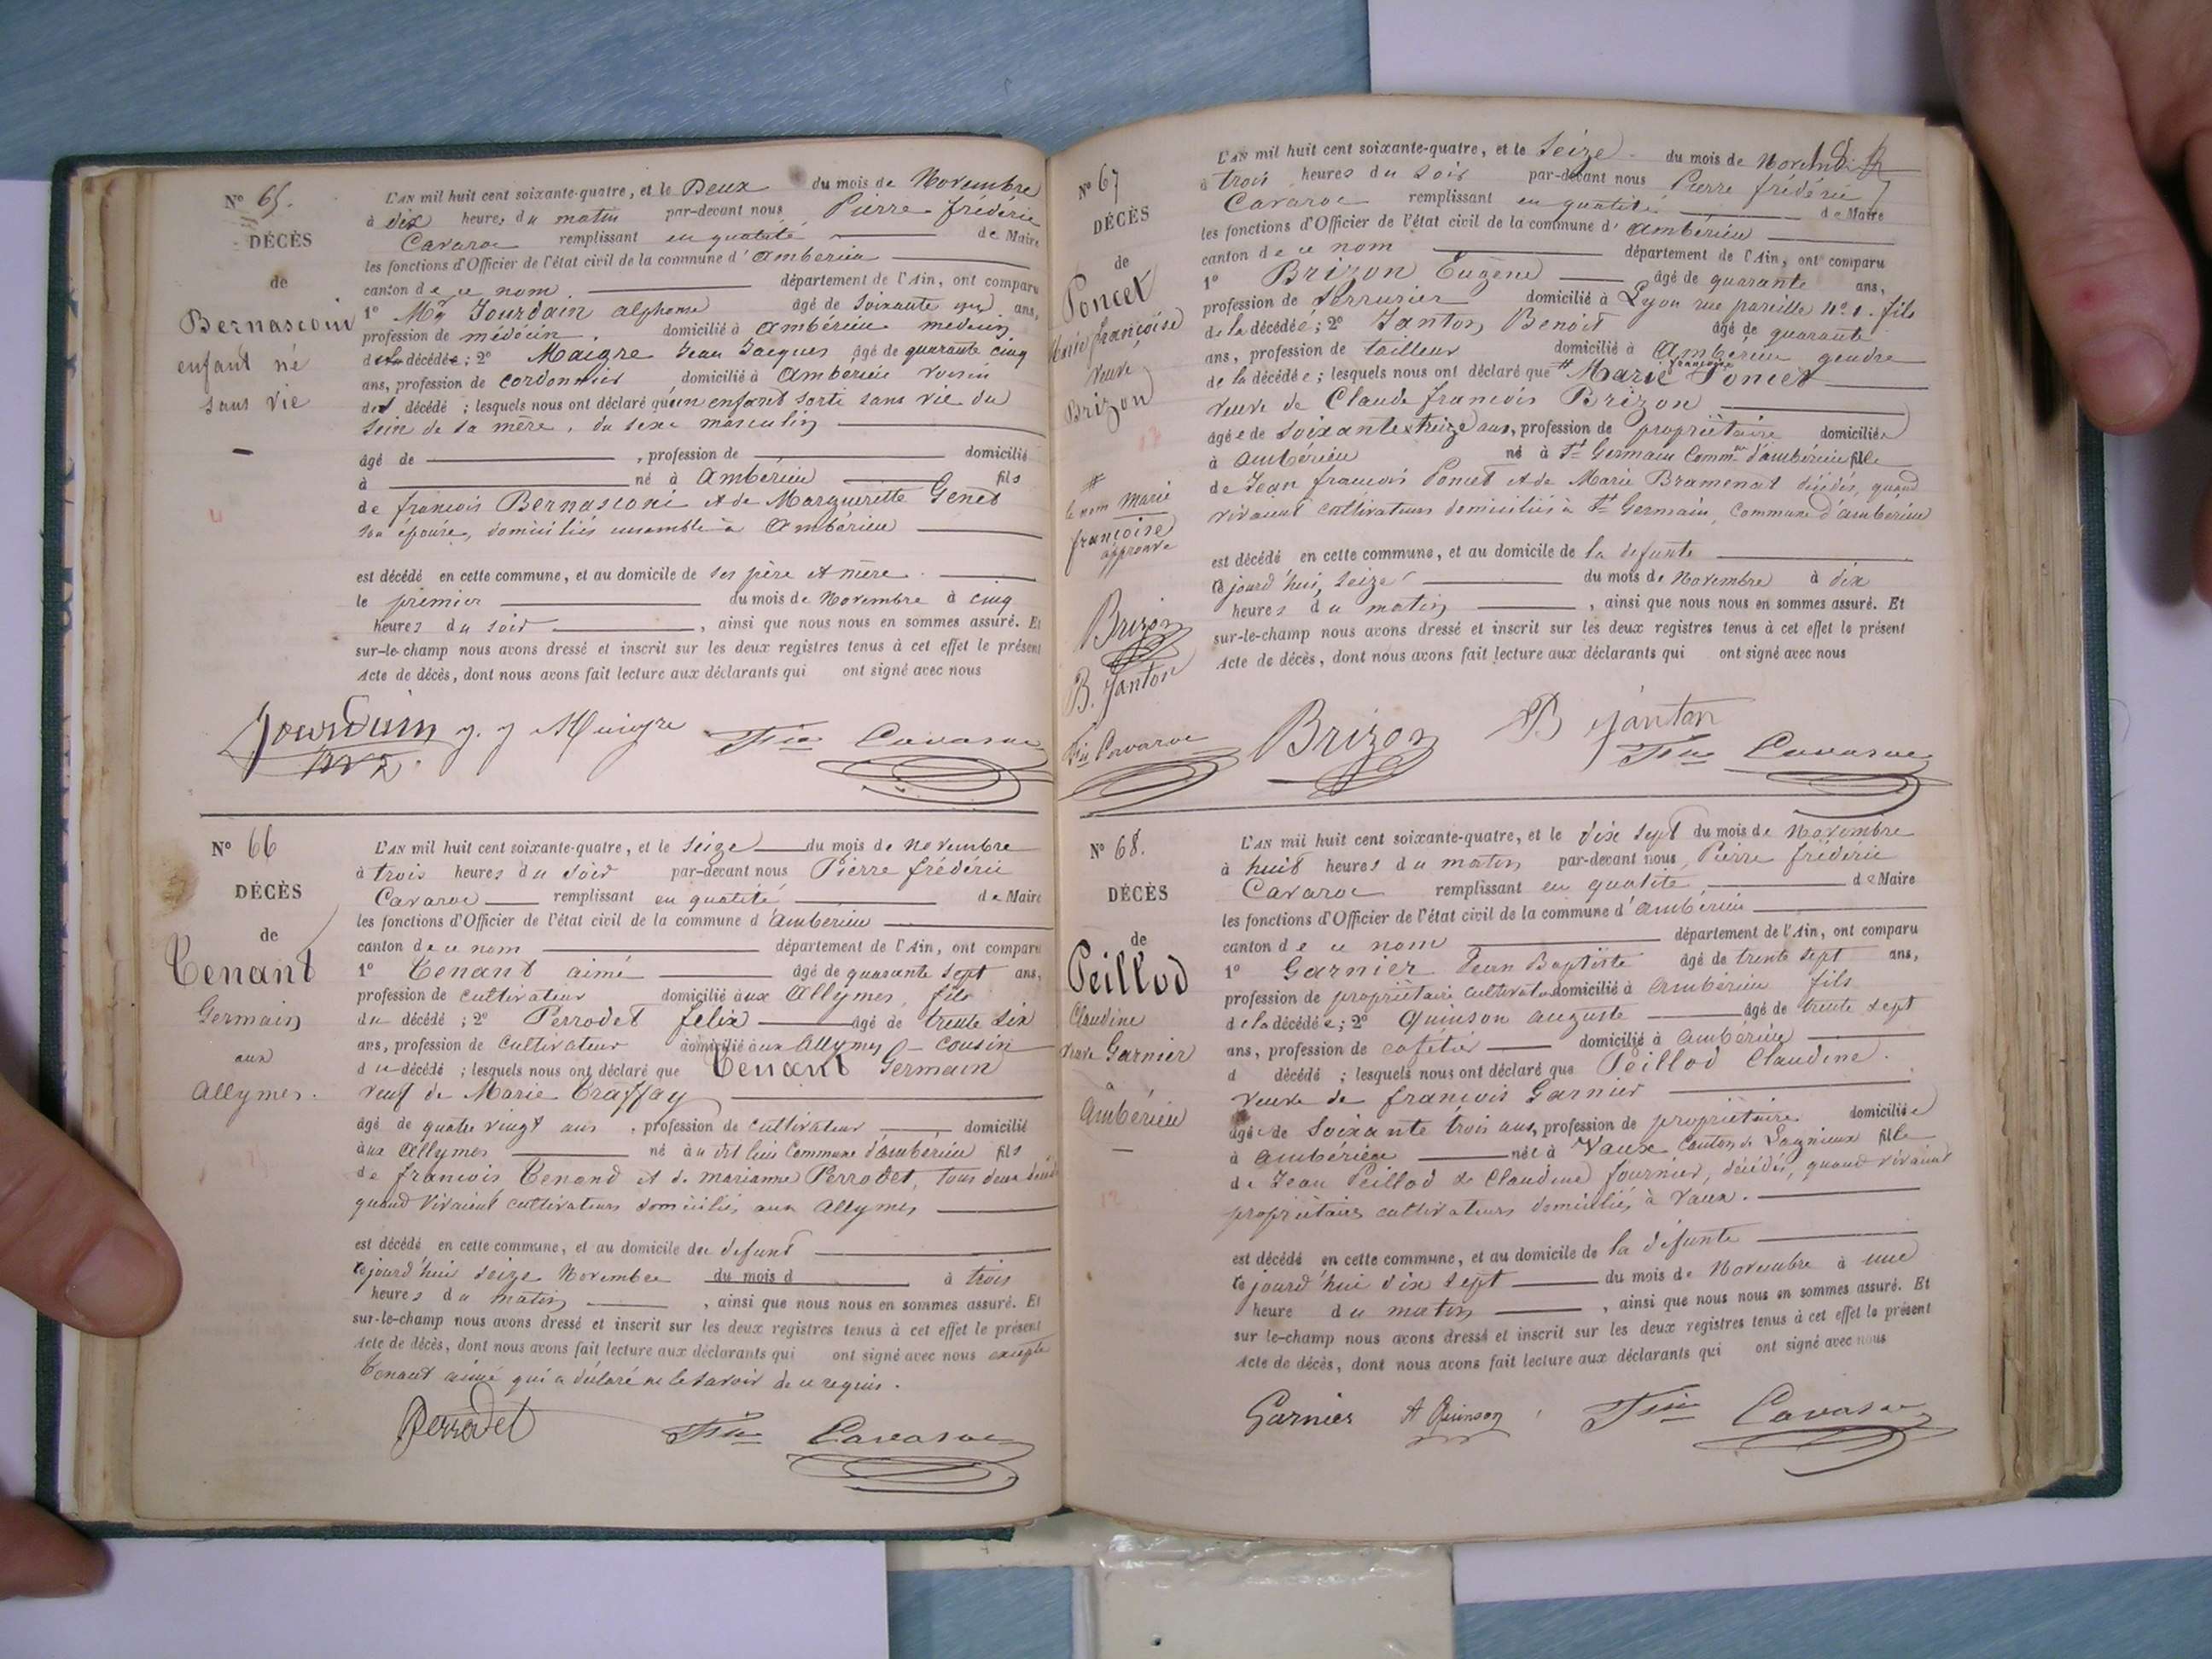 N° 65.
DÉCÈS
de
Bernasconi
enfant né
sans vie
L'AN mil huit cent soixante-quatre, et le Deux du mois de Novembre
à dix heures du matin par-devant nous Pierre frédéric
Cavaroc remplissant en qualité de Maire
les fonctions d'Officier de l'état civil de la commune d'ambérieu
canton de ce nom département de l'Ain, ont comparu
1° Mr Jourdain alphonse âgé de soixante ans,
profession de médécin. domicilié à ambérieu medecin
de la décédée; 2° Maigre Jean Jacques âgé de quarante cinq
ans, profession de cordonnier domicilié à ambérieu voisin
du décédé ; lesquels nous ont déclaré qu'un enfant sorti sans vie du
sein de sa mère, du sexe masculin
âgé de , profession de domicilié
à né à ambérieu fils
de francois Bernasconi et de Marguerette Genet
son épouse, domiciliés ensemble à ambérieu
est décédé en cette commune, et au domicile de ses père et mère
le premier du mois de Novembre à cinq
heures du soir , ainsi que nous nous en sommes assuré. Et
sur-le-champ nous avons dressé et inscrit sur les deux registres tenus à cet effet le présent
Acte de décès, dont nous avons fait lecture aux déclarants qui ont signé avec nous
Jourdain J. J Maigre Fic Cavaroc
N° 66
DÉCÈS
de
Tenant
Germain
aux
Allymes.
L'AN mil huit cent soixante-quatre, et le seize du mois de novembre
à trois heures du soir par-devant nous Pierre frédéric
Cavaroc remplissant en qualité de Maire
les fonctions d'Officier de l'état civil de la commune d'ambérieu
canton de ce nom département de l'Ain, ont comparu
1° Tenant aimé âgé de quarante sept ans,
profession de cultivateur domicilié aux Allymes, fils
du décédé ; 2° Perrodet felix âgé de trente six
ans, profession de cultivateur domicilié aux allymes cousin
du décédé ; lesquels nous ont déclaré que Tenant Germain
veuf de Marie Traffay
âgé de quatre vingt ans , profession de cultivateur domicilié
aux allymes né au dit lieu Commune d'ambérieu fils
de francois Tenand et de marianne Perrodet, tous deux
quand vivaient cultivateurs domiciliés aux allymes
est décédé en cette commune, et au domicile du defunt
cejourd'hui seize Novembre du mois d à trois
heures du matin , ainsi que nous nous en sommes assuré. Et
sur-le-champ nous avons dressé et inscrit sur les deux registres tenus à cet effet le présent
Acte de décès, dont nous avons fait lecture aux déclarants qui ont signé avec nous excepté
Tenant aimé qui a déclaré ne le savoir de ce requis.
Perrodet Fic Cavaroc
N° 67
DÉCÈS
de
Poncet
Marie françoise
veuve
Brizon
#
le nom Marie
françoise
approuvé
Brizon
B. Janton
Fic Cavaroc
L'AN mil huit cent soixante-quatre, et le seize du mois de Novembre
à trois heures du soir par-devant nous Pierre frédéric
Cavaroc remplissant en qualité de Maire
les fonctions d'Officier de l'état civil de la commune d'ambérieu
canton de ce nom département de l'Ain, ont comparu
1° Brizon Eugène âgé de quarante ans,
profession de serrurier domicilié à Lyon rue pareille n° 1. fils
de la décédée; 2° Janton Benoit âgé de quarante
ans, profession de tailleur domicilié à Ambérieu gendre
de la décédée ; lesquels nous ont déclaré que # Marie françoise Poncet
veuve de Claude francois Brizon
âgée de soixante treize ans, profession de propriétaire domiciliée
à ambérieu né à St Germain Commne d'ambérieu fille
de Jean francois Poncet et de Marie Bramenat décédés, quand
vivaient cultivateurs domiciliés à St Germain, Commune d'ambérieu
est décédé en cette commune, et au domicile de la defunte
cejourd'hui, seize du mois de Novembre à dix
heures du matin , ainsi que nous nous en sommes assuré. Et
sur-le-champ nous avons dressé et inscrit sur les deux registres tenus à cet effet le présent
Acte de décès, dont nous avons fait lecture aux déclarants qui ont signé avec nous
Brizon B Janton
Fic Cavaroc
N° 68.
DÉCÈS
de
Peillod
Claudine
veuve Garnier
a
Ambérieu
L'AN mil huit cent soixante-quatre, et le dix sept du mois de Novembre
à huit heures du matin par-devant nous Pierre frédéric
Cavaroc remplissant en qualité de Maire
les fonctions d'Officier de l'état civil de la commune d'ambérieu
canton de ce nom département de l'Ain, ont comparu
1° Garnier Jean Baptiste âgé de trente sept ans,
profession de propriétaire cultivateur domicilié à ambérieu fils
de la décédée; 2° Quinson auguste âgé de trente sept
ans, profession de cafetier domicilié à ambérieu
d décédé ; lesquels nous ont déclaré que Peillod Claudine.
veuve de francois Garnier
âgée de soixante trois ans, profession de propriétaire domiciliée
à ambérieu née à Vaux canton de Lagnieux fille
de Jean Peillod de Claudine fournier, décédés, quand vivaient
propriétaires cultivateurs domiciliés à Vaux.
est décédé en cette commune, et au domicile de la defunte
cejourd'hui dix sept du mois de Novembre à une
heure du matin , ainsi que nous nous en sommes assuré. Et
sur le-champ nous avons dressé et inscrit sur les deux registres tenus à cet effet le présent
Acte de décès, dont nous avons fait lecture aux déclarants qui ont signé avec nous
Garnier A Quinson Fic Cavaroc